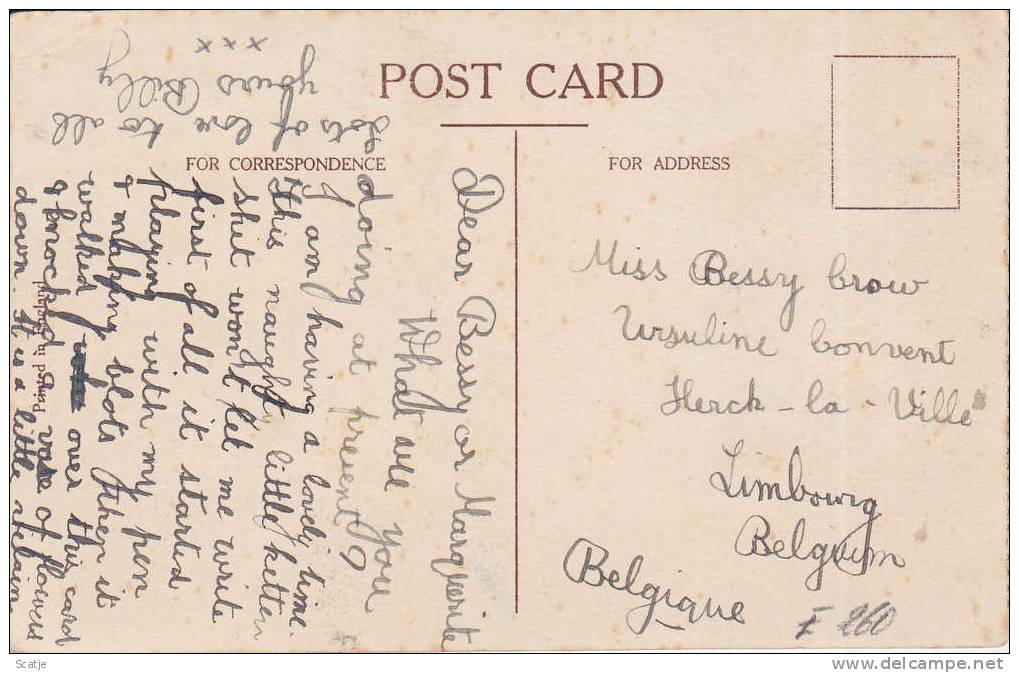 POST CARD
FOR CORRESPONDENCE
FOR ADDRESS
Dear Bessy or Marquerite
What are you
doing at present?
I am having a lovely time.
This naughty little ketten
shit won't let me write
first of all it started
playing with my pen
& making blots then it
walked over this card
& knocked vase of flowers
down. It is a little
Lots of love to all
yours Billy
x x x
Printed in England
Miss Bessy Crow
Ursuline Convent
Herck-la-Ville
Limbourg
Belgium
Belgique
F 260
Scatje
www.delcampe.net